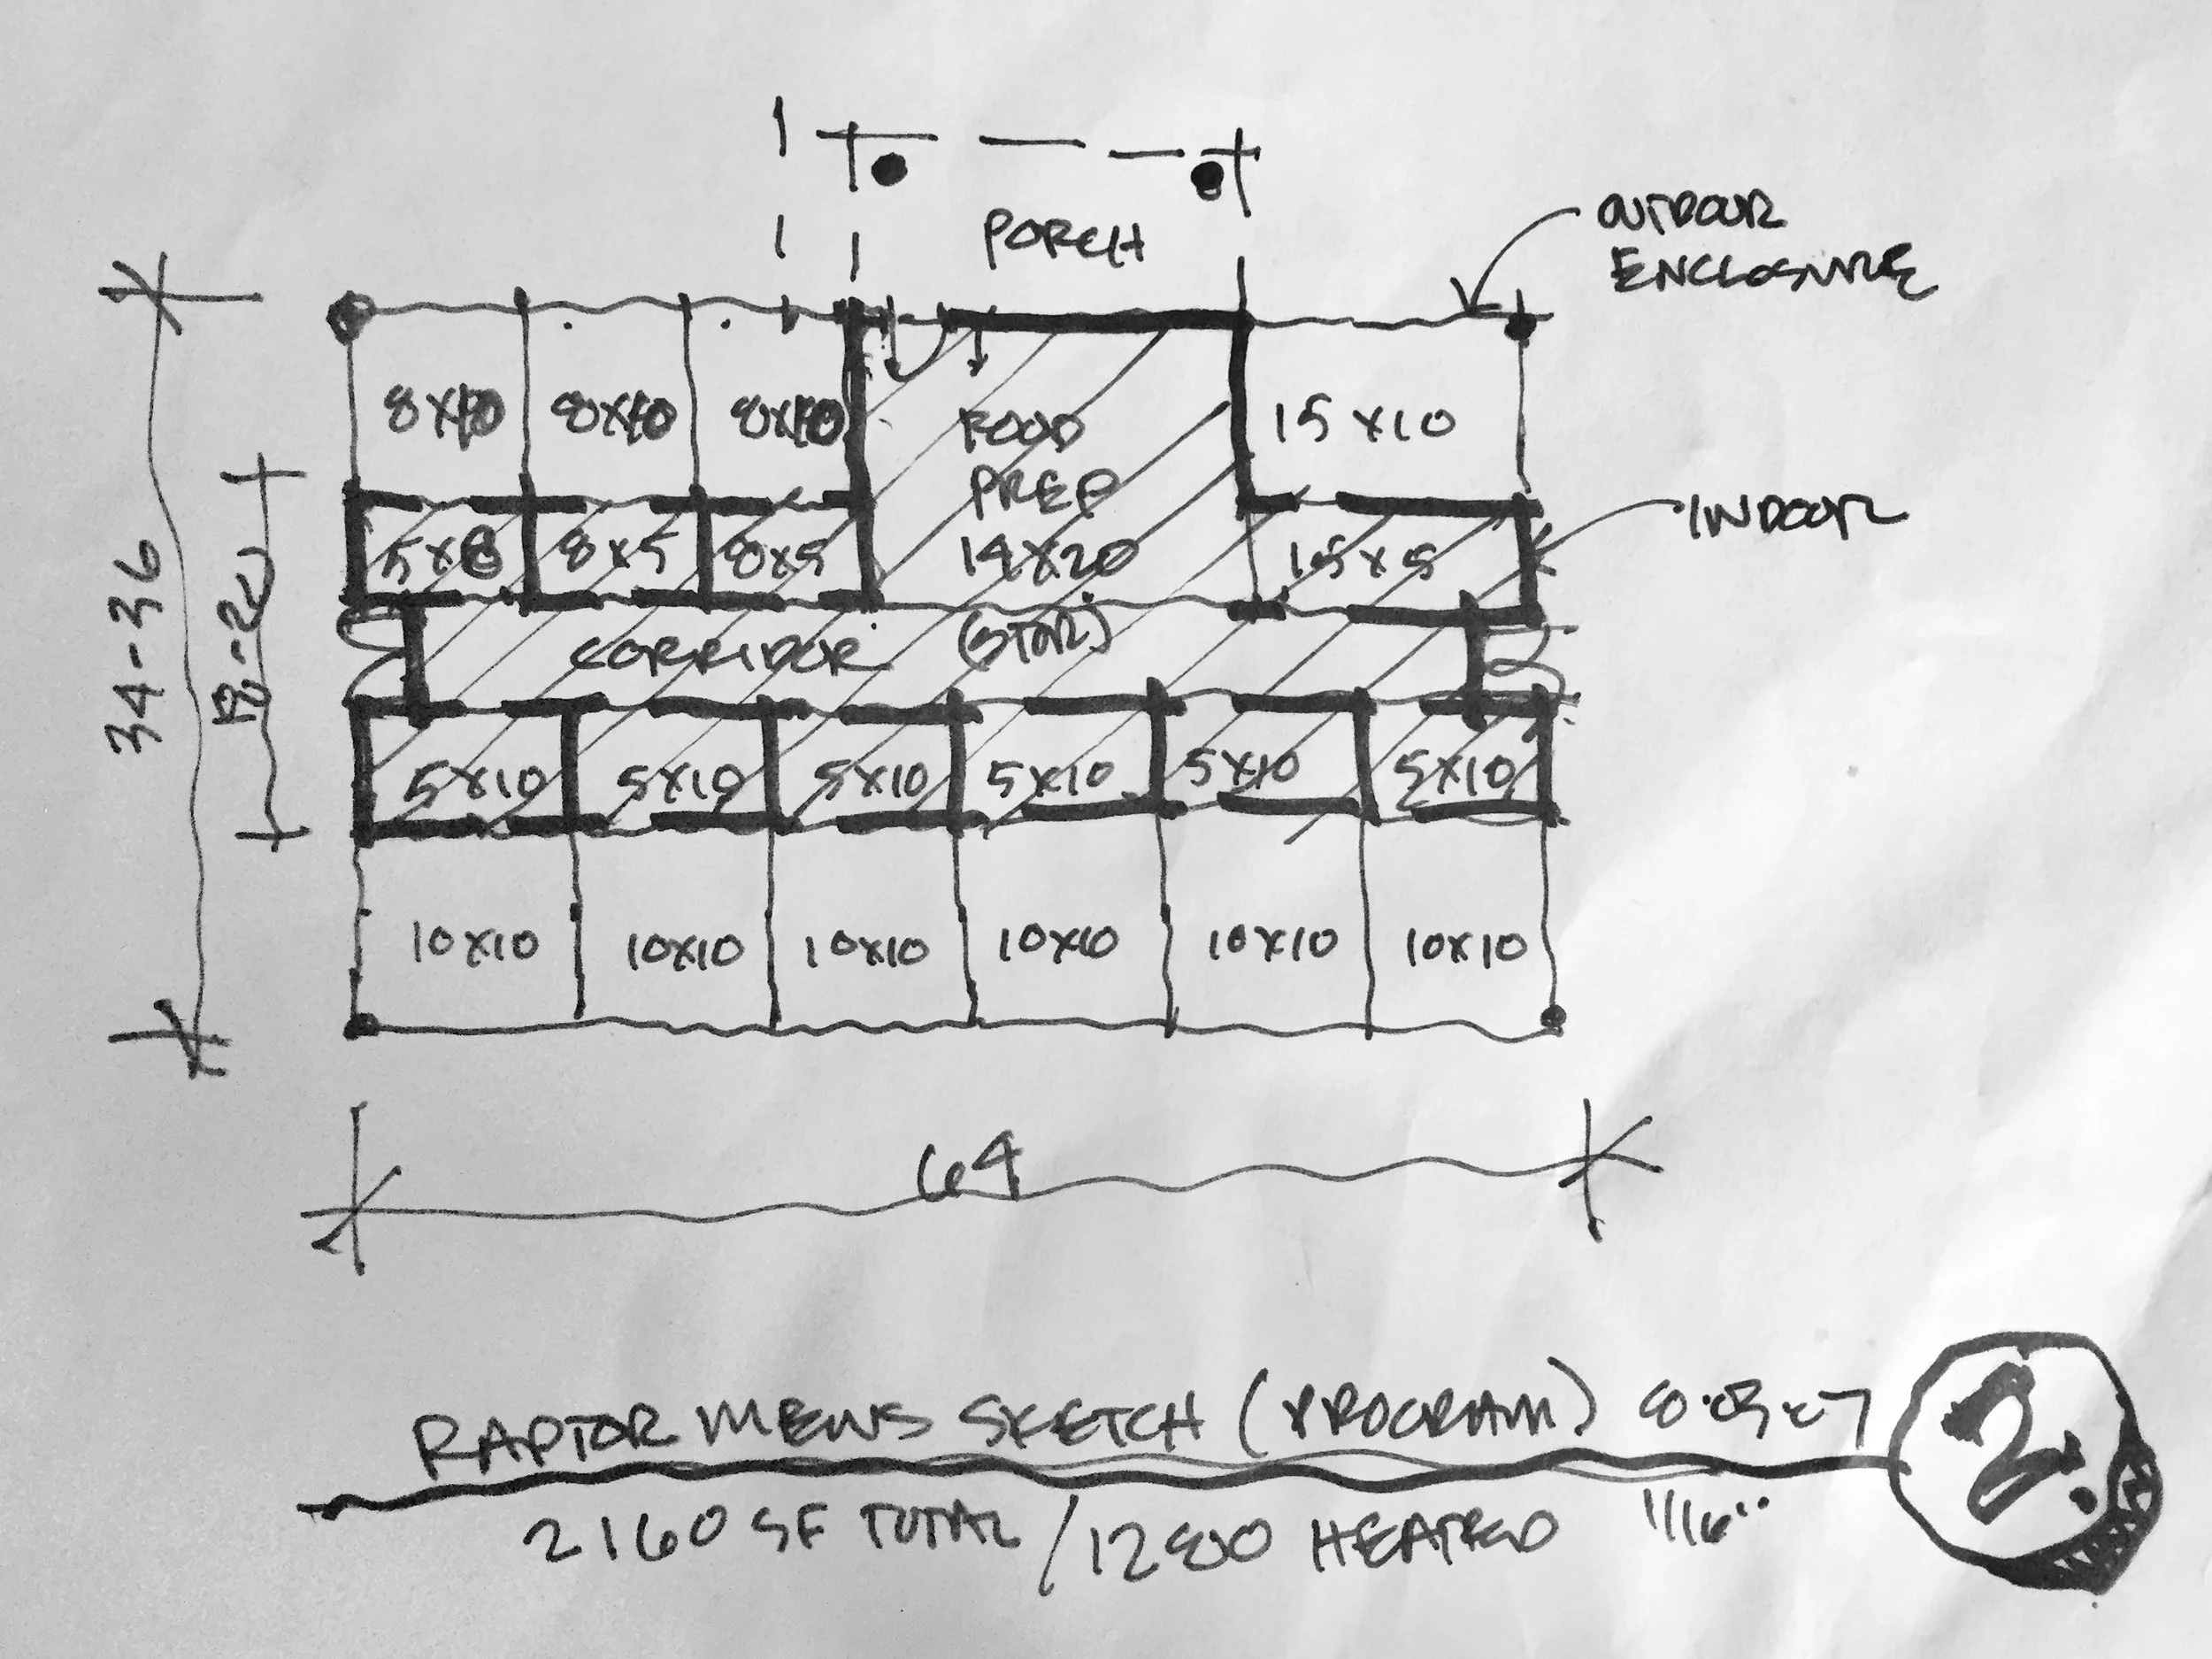 PORCH
OUTDOOR
ENCLOSURE
8X10 8X10 8X10
FOOD
PREP
14X20
15X10
INDOOR
5X8 8X5 8X5
15X5
CORRIDOR (STOR.)
34-36
5X10 5X10 5X10 5X10 5X10 5X10
10X10 10X10 10X10 10X10 10X10 10X10
64
RAPTOR MEWS SKETCH (PROGRAM)
2.
2160 SF TOTAL / 1280 HEATED 1/16"